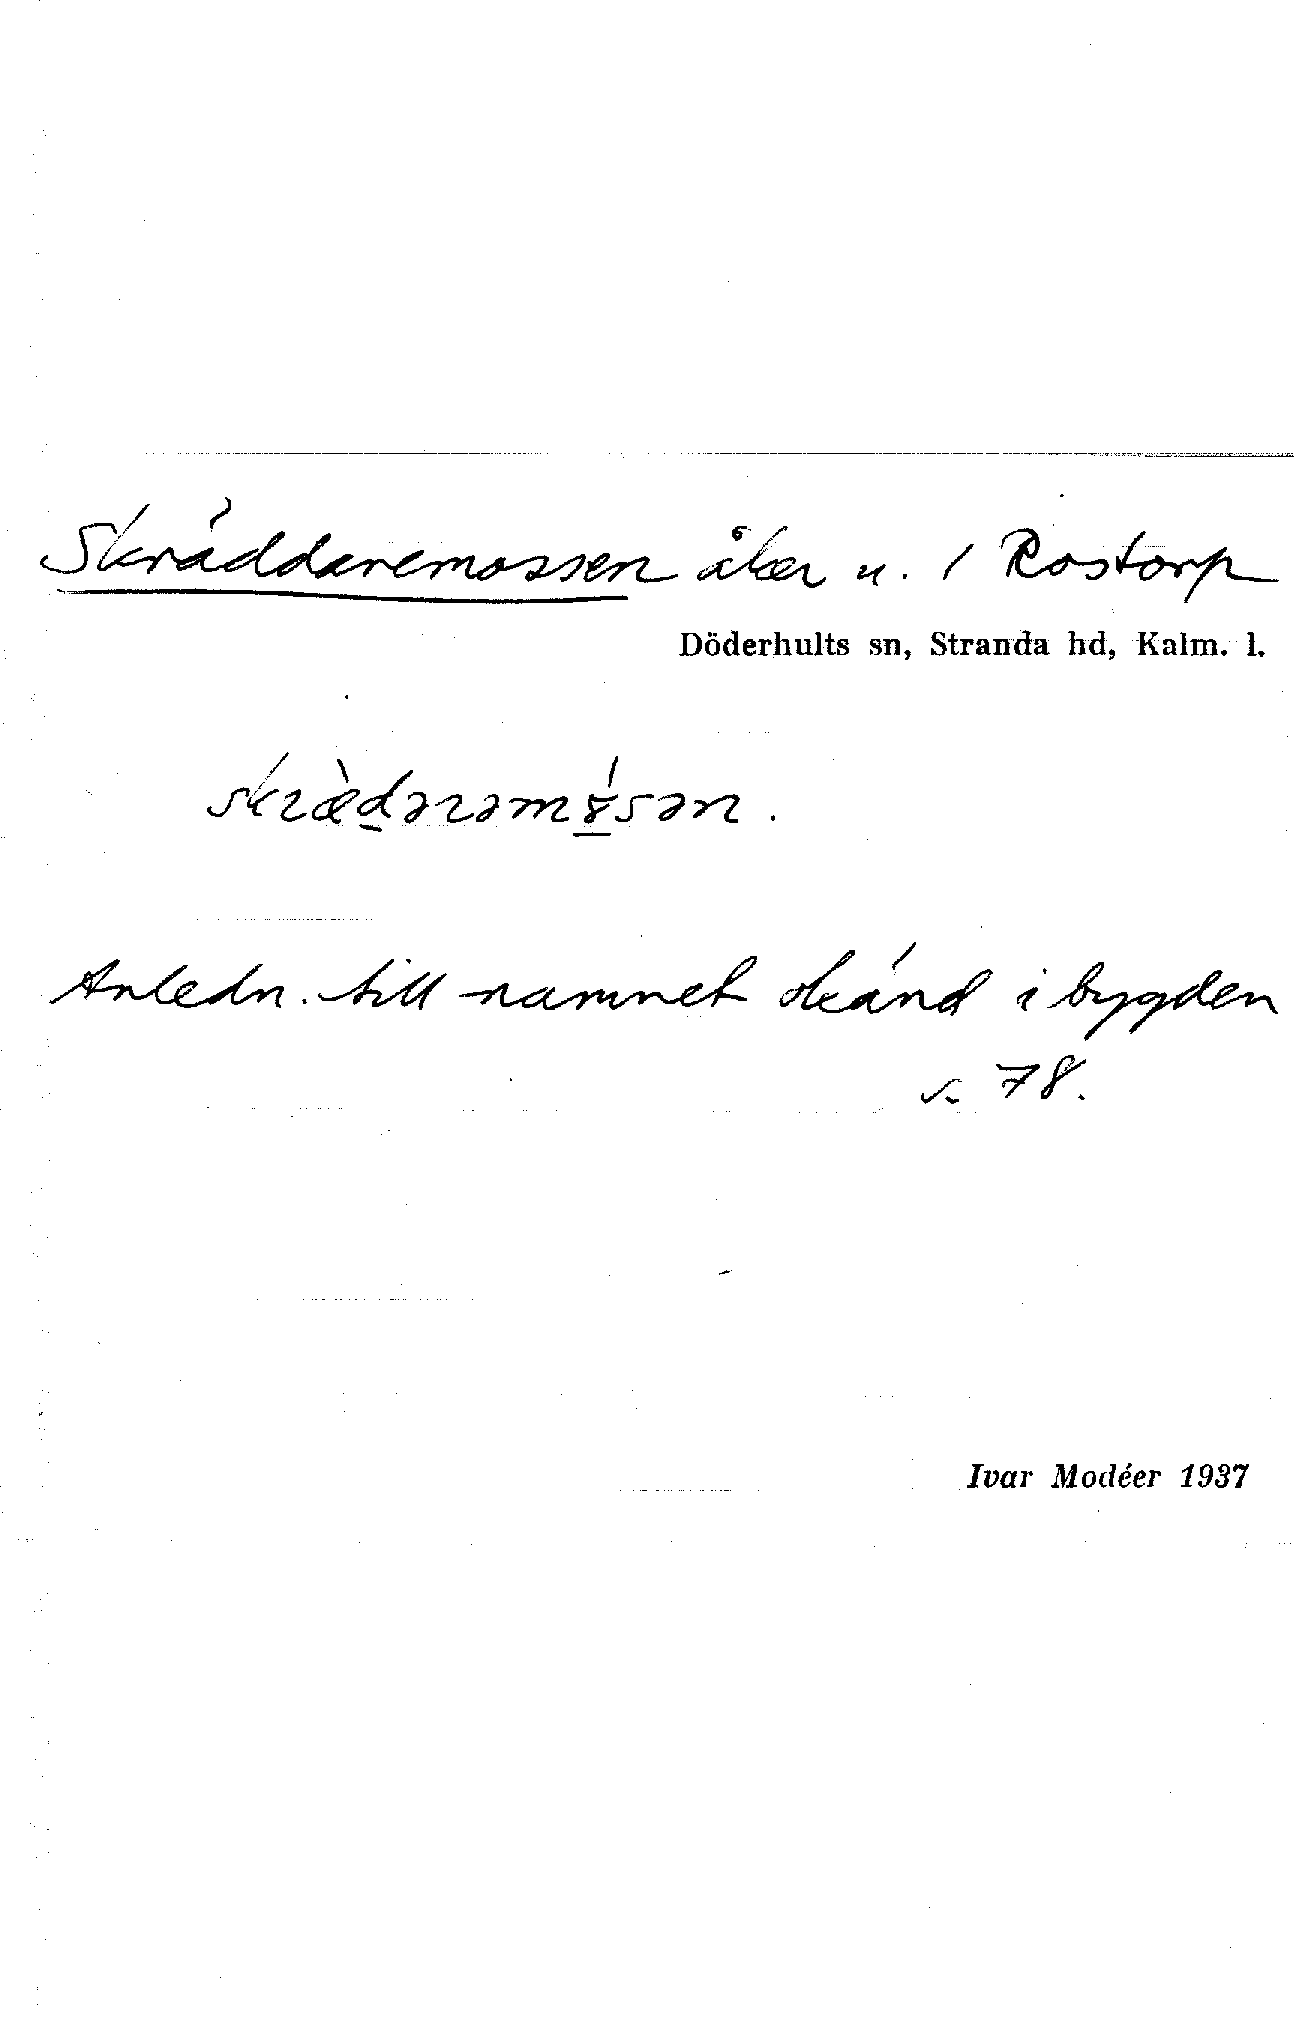 Skräddaremossen åker u. 1 Rostorp
Döderhults sn, Stranda hd, Kalm. l.
skræ̀d̲ərəmɤ̲́sən.
Anledn. till namnet okänd i bygden
s. 78.
Ivar Modéer 1937